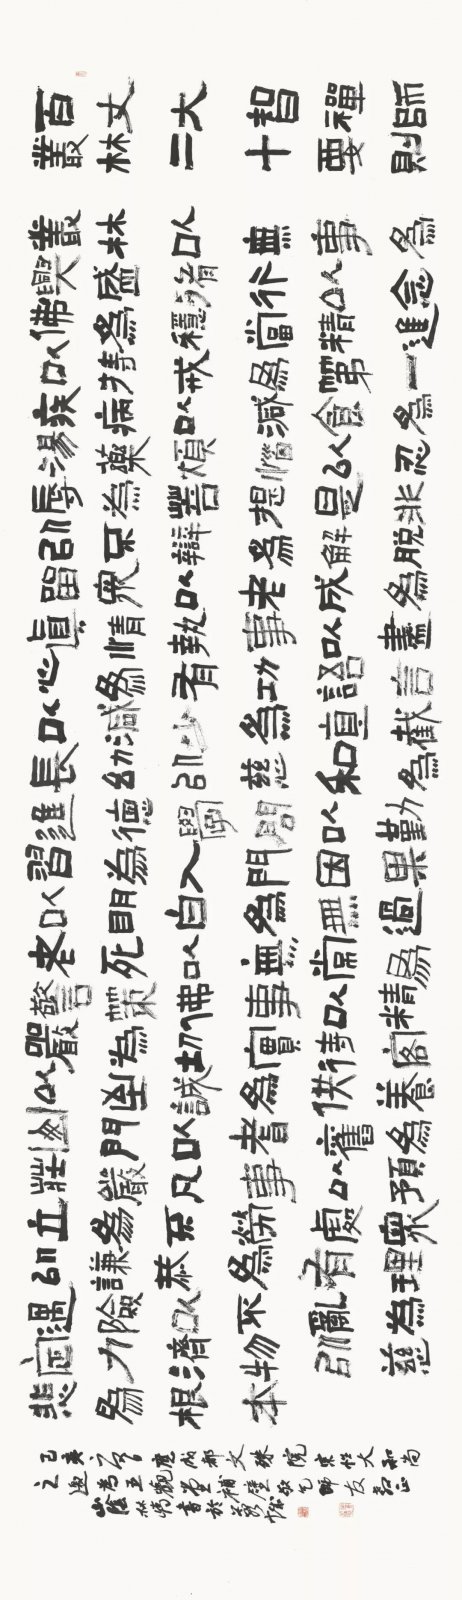 百丈大智禪師
叢林二十要則
叢林以無事為
興盛修行以念
佛為穩當精進
以持戒為第一
疾病以減食為
湯藥煩惱以忍
辱為菩提是非
以不辯為解脫
留眾以老成為
真情執事以盡
心為有功語言
以減少為直截
長幼以慈和為
進德學問以勤
習為入門因果
以明白為無過
老死以無常為
警策佛事以精
嚴為切實待客
以至誠為供養
山門以耆舊為
莊嚴凡事以預
立為不勞處眾
以謙恭為有理
遇險以不亂為
定力濟物以慈
悲為根本
己亥之應成都文殊院宗性大和尚
之邀為五觀堂補壁敬乞師友教正
山陰林書於